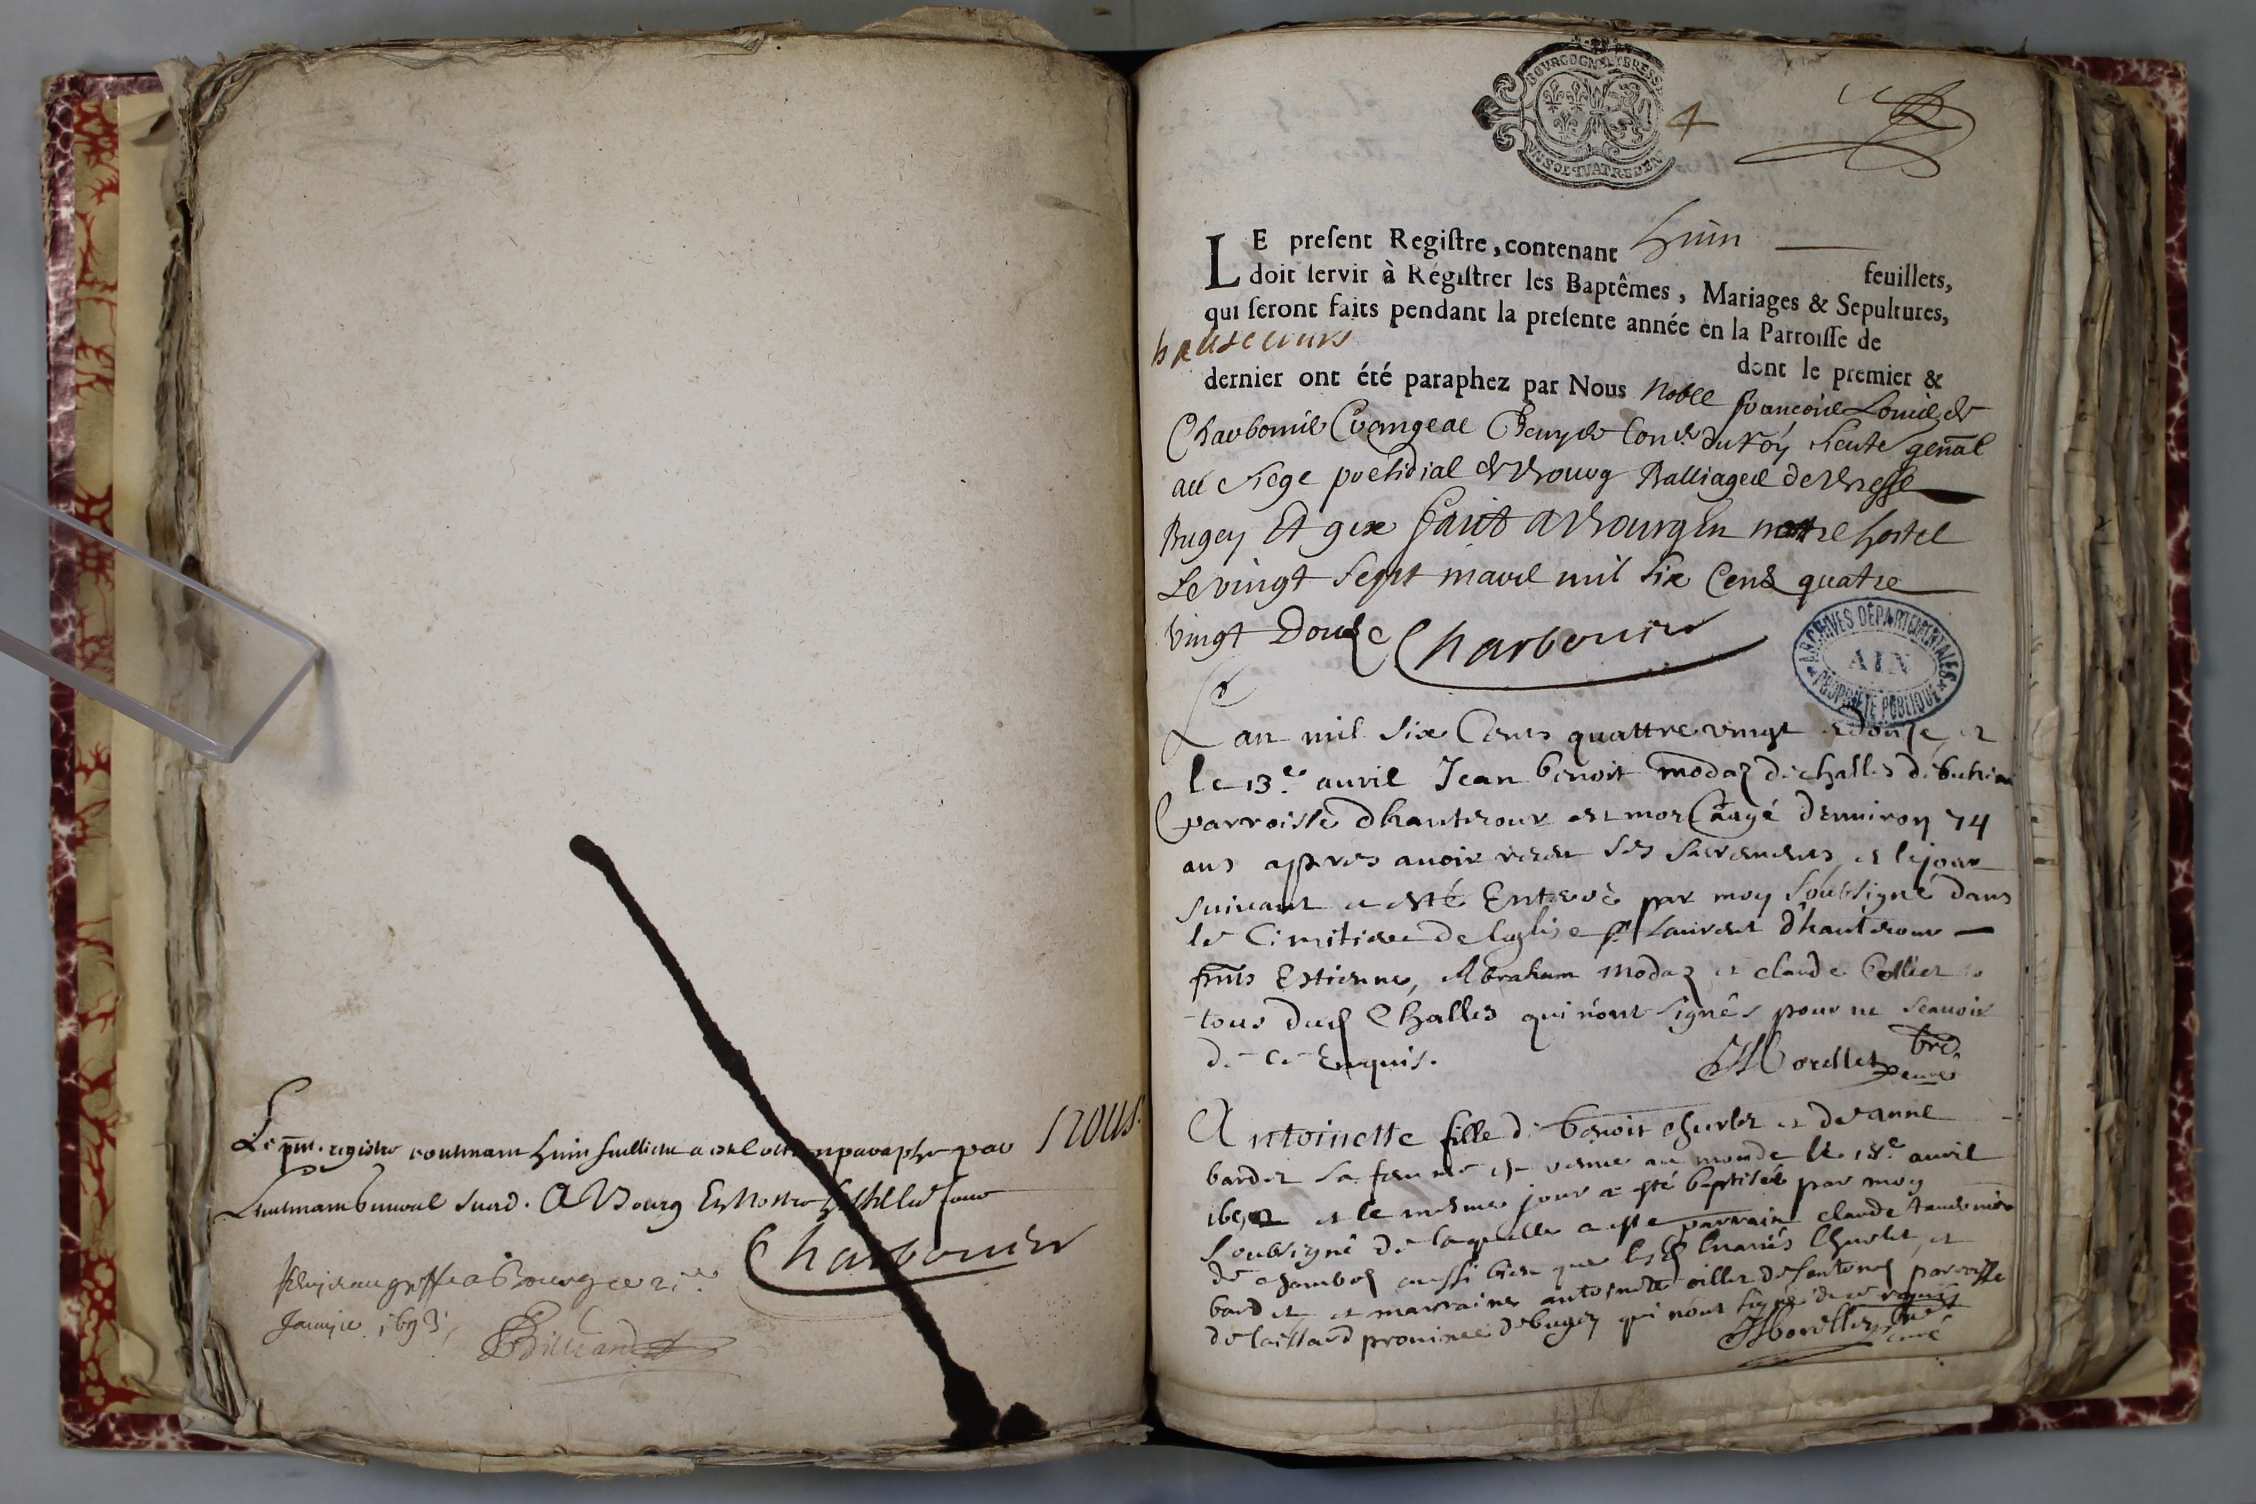 Le pnt. registre contenant huit feuillets a esté cotté et paraphé par Nous
Lieutenant General susd. A Bourg En Nostre hostel les jour
Charbonier
a Bourg ce 2
Janvier 1693
Billiand
BOURGOGNE BRESS
UN SOL QUATRE DEN
4
LE preſent Regiſtre, contenant huit
feuillets,
doit ſervir à Régiſtrer les Baptêmes, Mariages & Sepultures,
qui ſeront faits pendant la preſente année en la Parroiſſe de
hautecours
dont le premier &
dernier ont été paraphez par Nous Noble françois Louis de
Charbonier Crangeac Coner du Roy Lieute genal
au siege presidial de Bourg Balliages de Bresse
Bugey Et gex fait a Bourg En nostre hostel
Le vingt sept mars mil six Cens quatre
vingt Douze Charbonier
ARCHIVES DÉPARTEMENTALES
AIN
PROPRIÉTÉ PUBLIQUE
L'an mil six Cents quattre vingt et douse, et
le 13e avril Jean benoit modaz de challes de
parroisse d'hautecour est mort aagé d'environ 74
ans appres avoir receu ses sacrements et le jour
suivant a esté Enterré par moy soubsigné dans
le Cimitiere de leglise st Laurent d'hautecour
pnts Estienne, Abraham modaz et claude bollier
tous dud Challes qui n'ont signés pour ne scavoir
de ce Enquis.
Morellet
bre
curé
Antoinette fille de benoit churlet et de anne
bardet sa femme est venue au monde le 18e avril
1692 et le mesme jour a esté baptisée par moy
soubsigné de laquelle a esté parrain claude
de chambod aussi bien que lesd mariés churlet, et
bardet et marraine antoinette oillet de parroisse
de province de bugey qui n'ont signé de ce requis
Morellet
curé